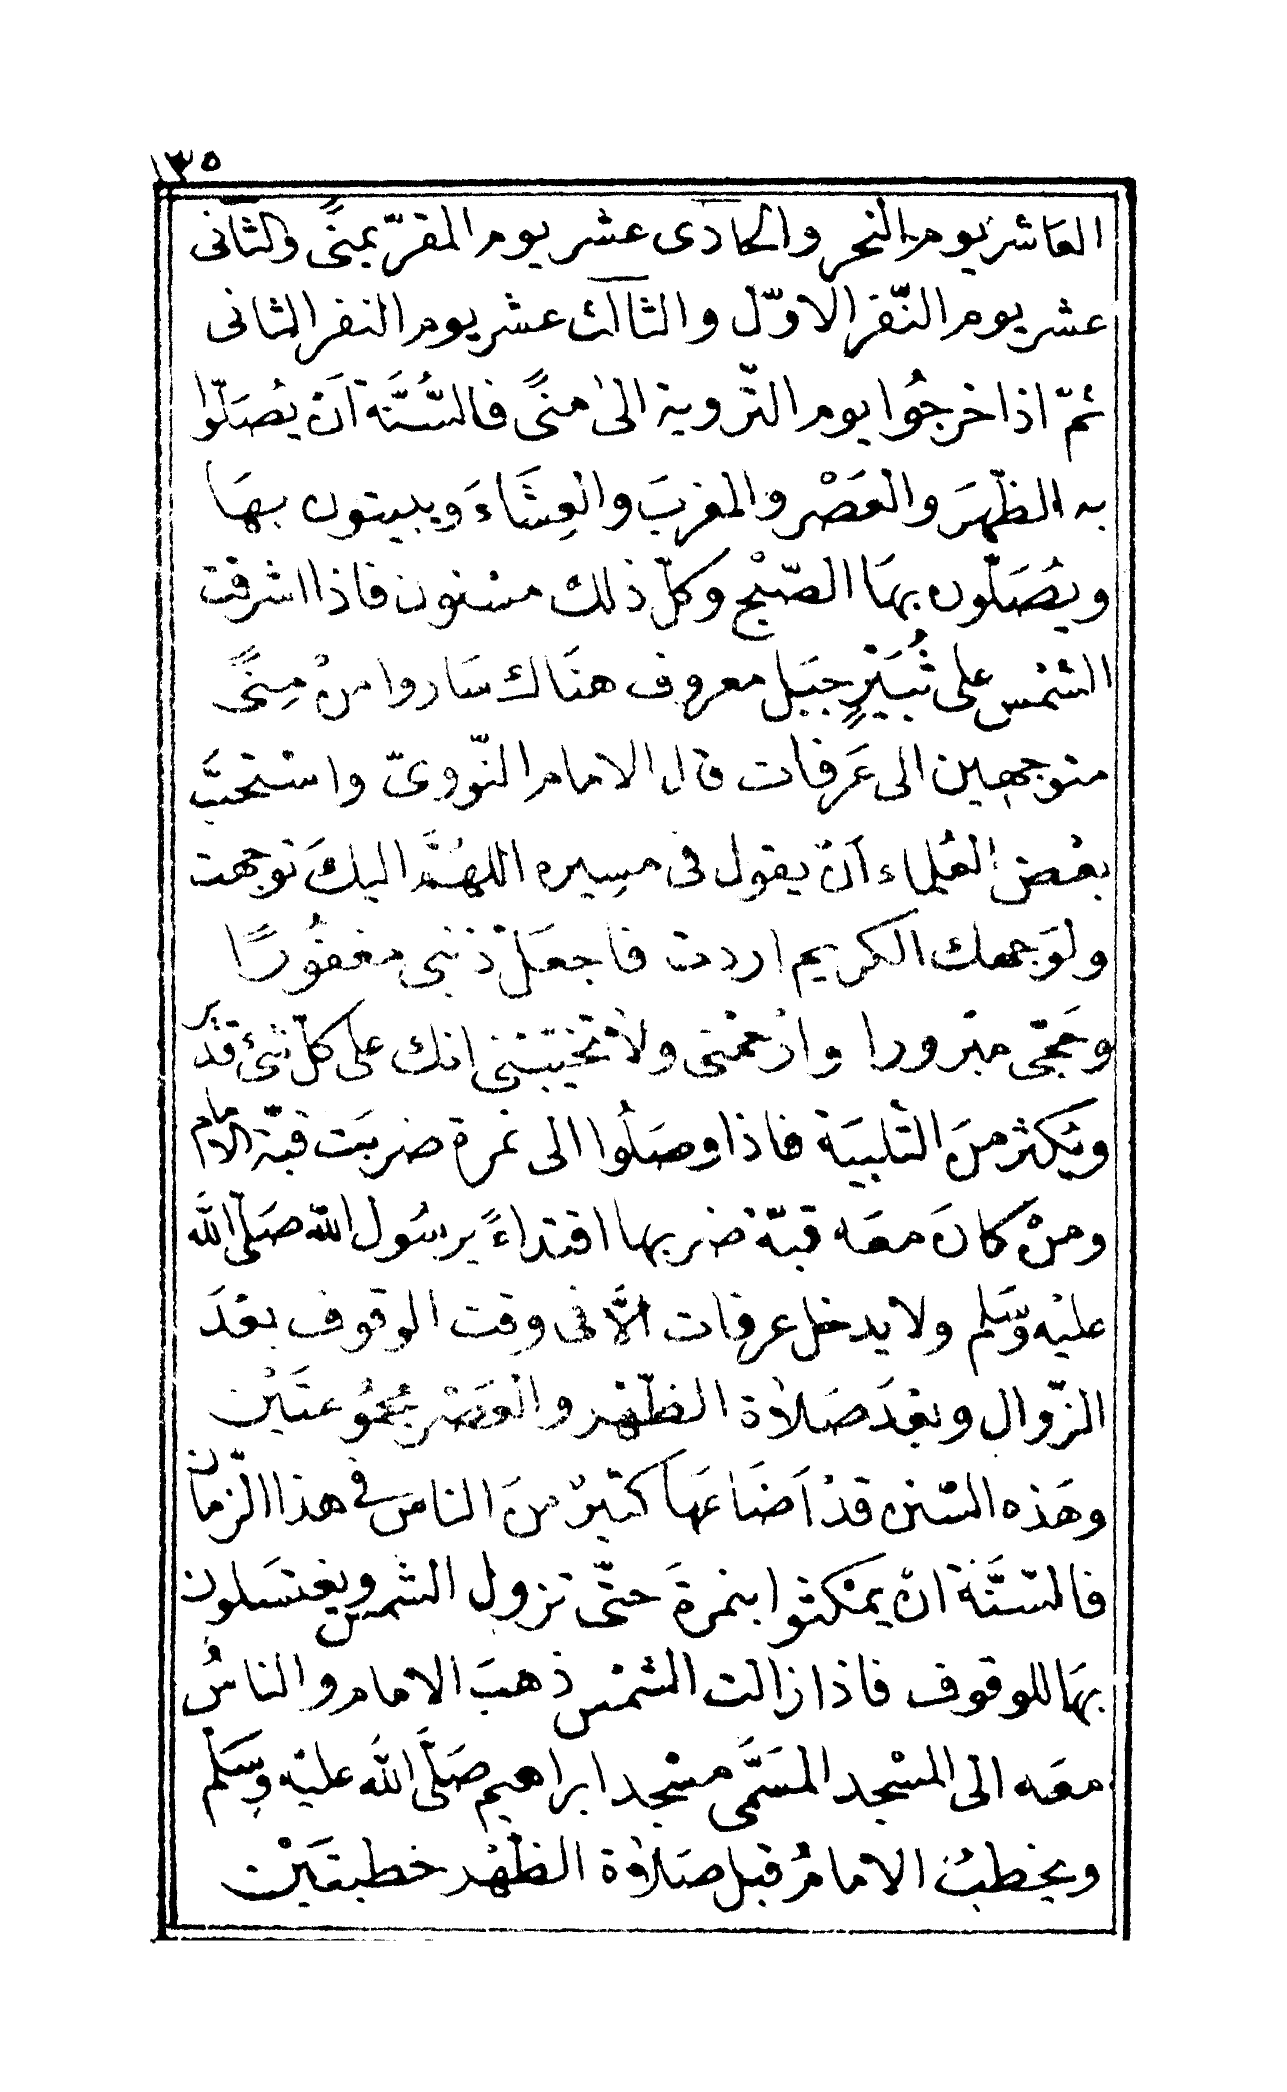 ١٣٥
العاشر يوم النحر والحادى عشر يوم المقرّ بمنًى والثانى
عشر يوم النّفر الاوّل والثالث عشر يوم النفر الثانى
ثمّ اذا خرجُوا يوم التّروية الىٰ منًى فالسُّنَّة اَنْ يُصَلّوا
به الظّهرَ والعَصْر والمغربَ والعِشَاءَ ويبيتون بهَا
ويُصَلّون بهَا الصّبْح وكلّ ذلك مسْنون فاذا اشرقت
الشمْس على ثُبَيْرٍ جبَل معروف هنَاك سَاروا منْ مِنًى
متوجهين الى عَرفات قال الامام النّووىّ واسْتحبَّ
بعْض العُلماء اَنْ يقول فى مسِيره اللهُمَّ اليكَ توجهت
ولوَجهك الكريم اردت فاجعَلْ ذنبى مغفُورًا
وحَجّى مبْرورا وارْحمْنى ولاٰ تخيّبْنى انك على كلّ شئ قدير
ويَكثر منَ التّلبيَة فاذا وصَلُوا الى نمرة ضربَت قبّة الامام
ومنْ كانَ معَه قبّة ضربها اقتداءً برسُول اللّٰه صَلّى اللّٰه
عليْه وسَلم ولا يدخل عرفات الَّا فى وقت الوقوف بعْدَ
الزّوال وبعْدَ صَلاٰة الظّهْر والعَصْر مجمُوعتَيْن
وهَذه السّنن قدْ اَضَاعَها كثيرٌ منَ الناس فى هذا الزّمان
فالسّنَّة انْ يمْكثوا بنمرةَ حتّى تزول الشمس ويغتسَلون
بهَا للوقوف فاذا زالت الشمْس ذهبَ الامام والناسُ
معَه الى المسْجد المسَمَّى مسْجد ابراهيم صَلَّى اللّٰه عليْه وسَلّم
ويخطبُ الامامُ قبل صَلاٰة الظّهْر خطبتَيْن